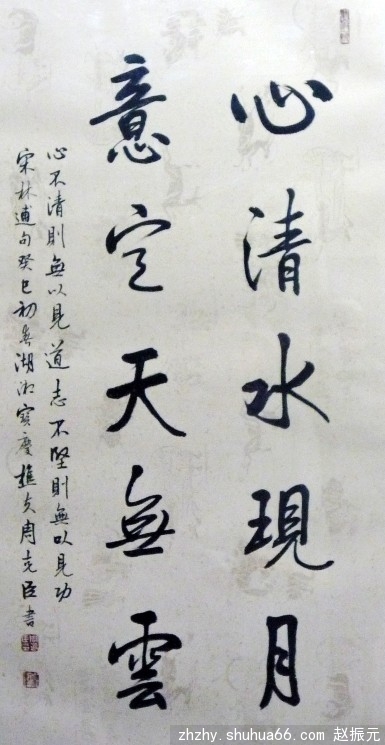 心清水現月
意定天無雲
心不清則無以見道志不堅則無以見功
宋林逋句癸巳初春湖湘寳慶樵夫周克臣書
zhzhy.shuhua66.com 赵振元